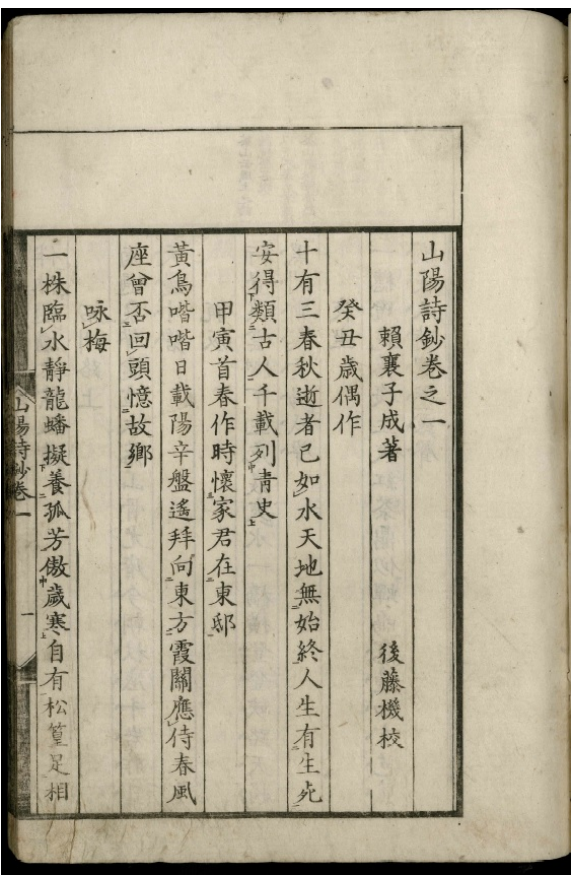 山陽詩鈔卷之一
賴襄子成著　後藤機校
癸丑歲偶作
十有三春秋逝者已如水天地無始終人生有生死
安得類古人千載列青史
甲寅首春作時懷家君在東邸
黃鳥喈喈日載陽辛盤遙拜向東方霞關應侍春風
座曾否回頭憶故鄉
咏梅
一株臨水靜龍蟠擬養孤芳傲歲寒自有松篁足相
山陽詩鈔卷一
一